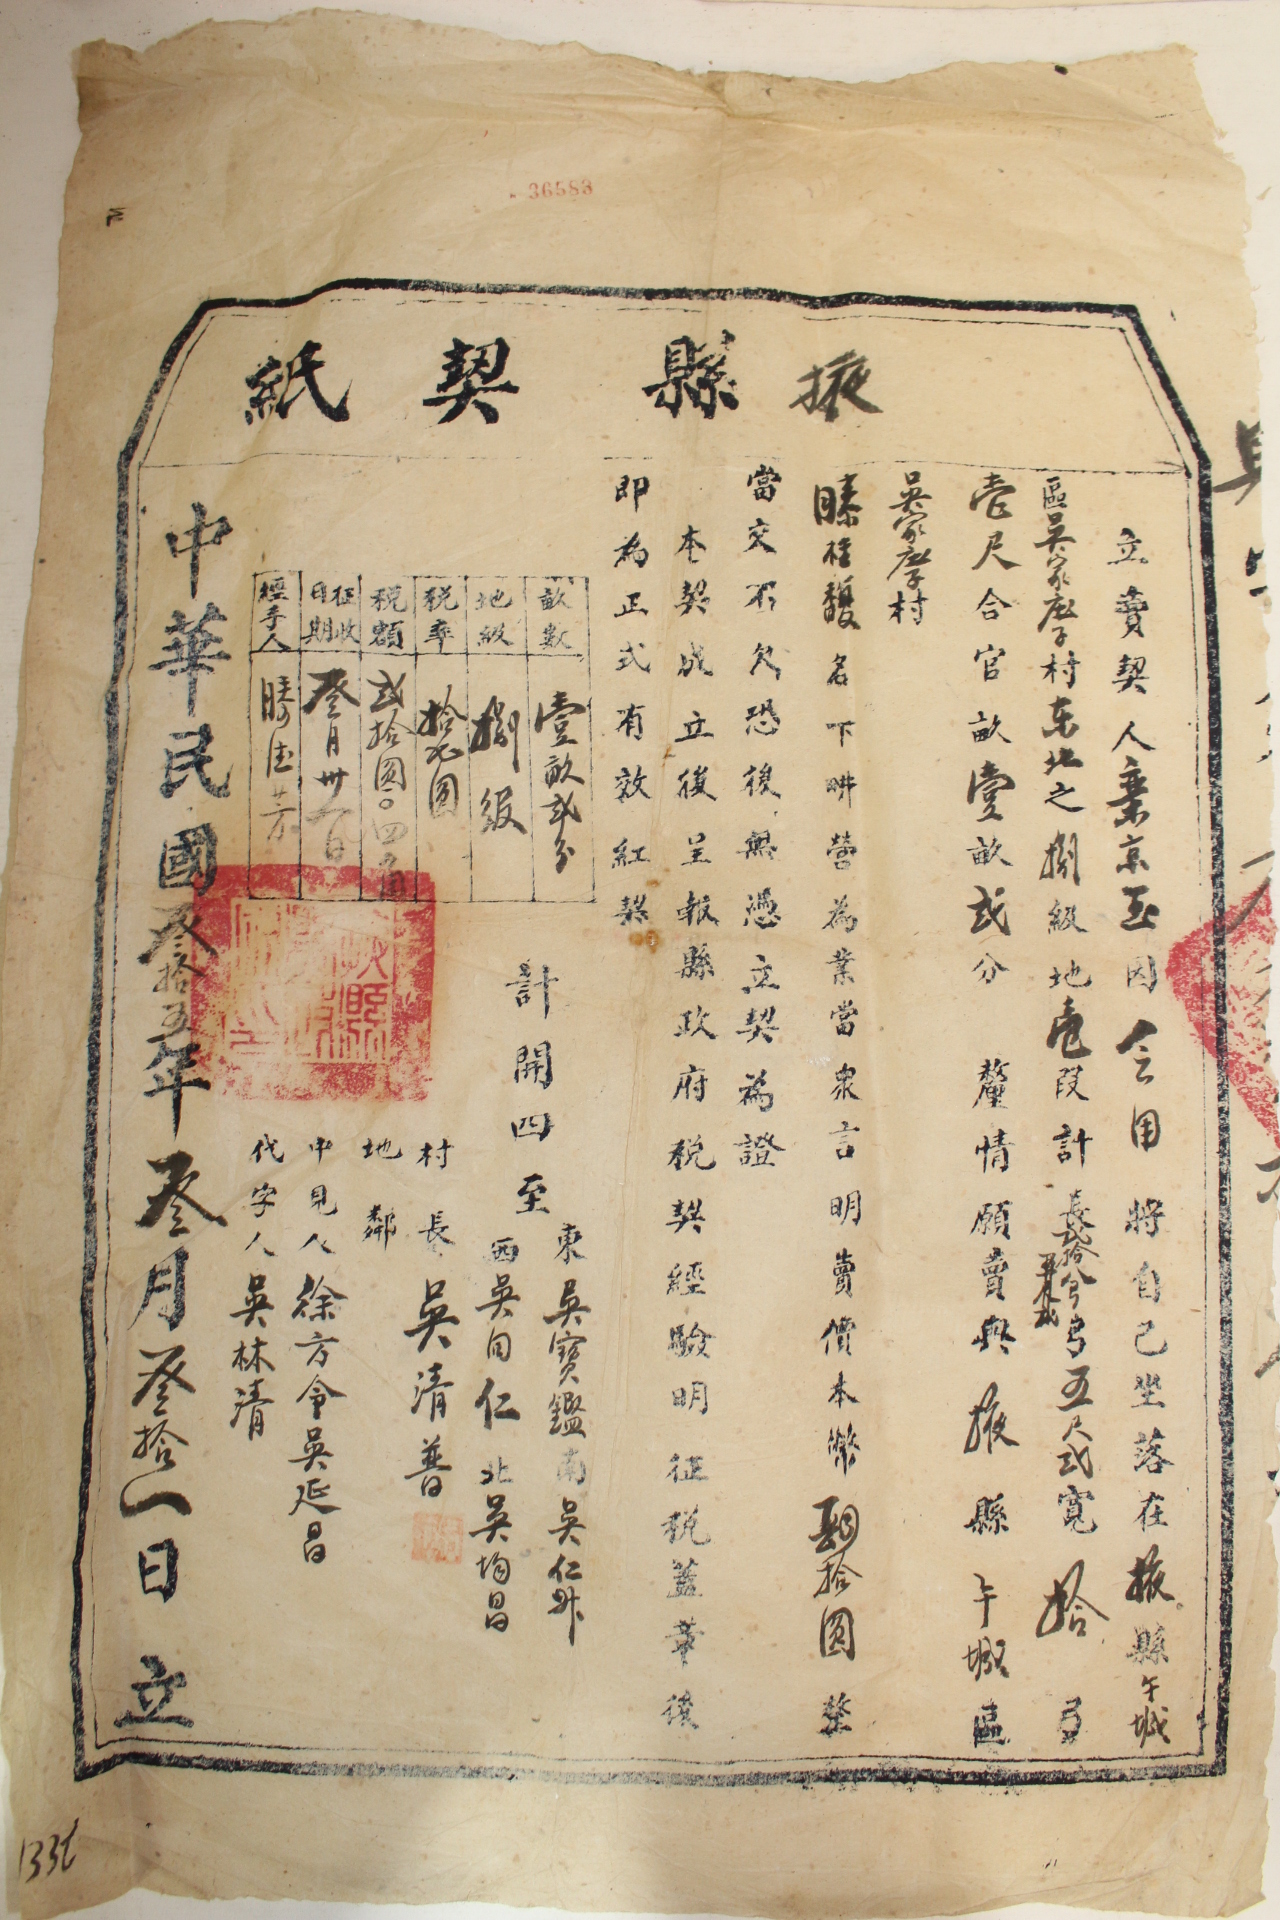 36583
掖縣契紙
立賣契人 京玉因 令用 將自己坐落在掖縣午城
區吳家 村東北之捌級地壱段計長 弓五尺弍寬拾弓
壱尺合官畝壹畝弍分 釐情願賣與掖縣午城區
吳家 村
滕桂馥名下 營為業當衆言明賣價本幣 拾圓整
當交不欠恐後無憑立契為證
本契成立後呈報縣政府稅契經驗明征稅蓋章後
即為正式有效紅契
畝數 壹畝弍分
地級 捌級
稅率 拾 圓
稅額 弍拾圓〇四角
征收日期 叁月卅一日
經手人 滕 芳
計開四至
東吳寶鑑南吳仁
西吳自仁北吳均昌
村長 吳清普
地鄰
中見人 徐方令吳延昌
代字人 吳林清
中華民國叁拾五年叁月叁拾一日立
133